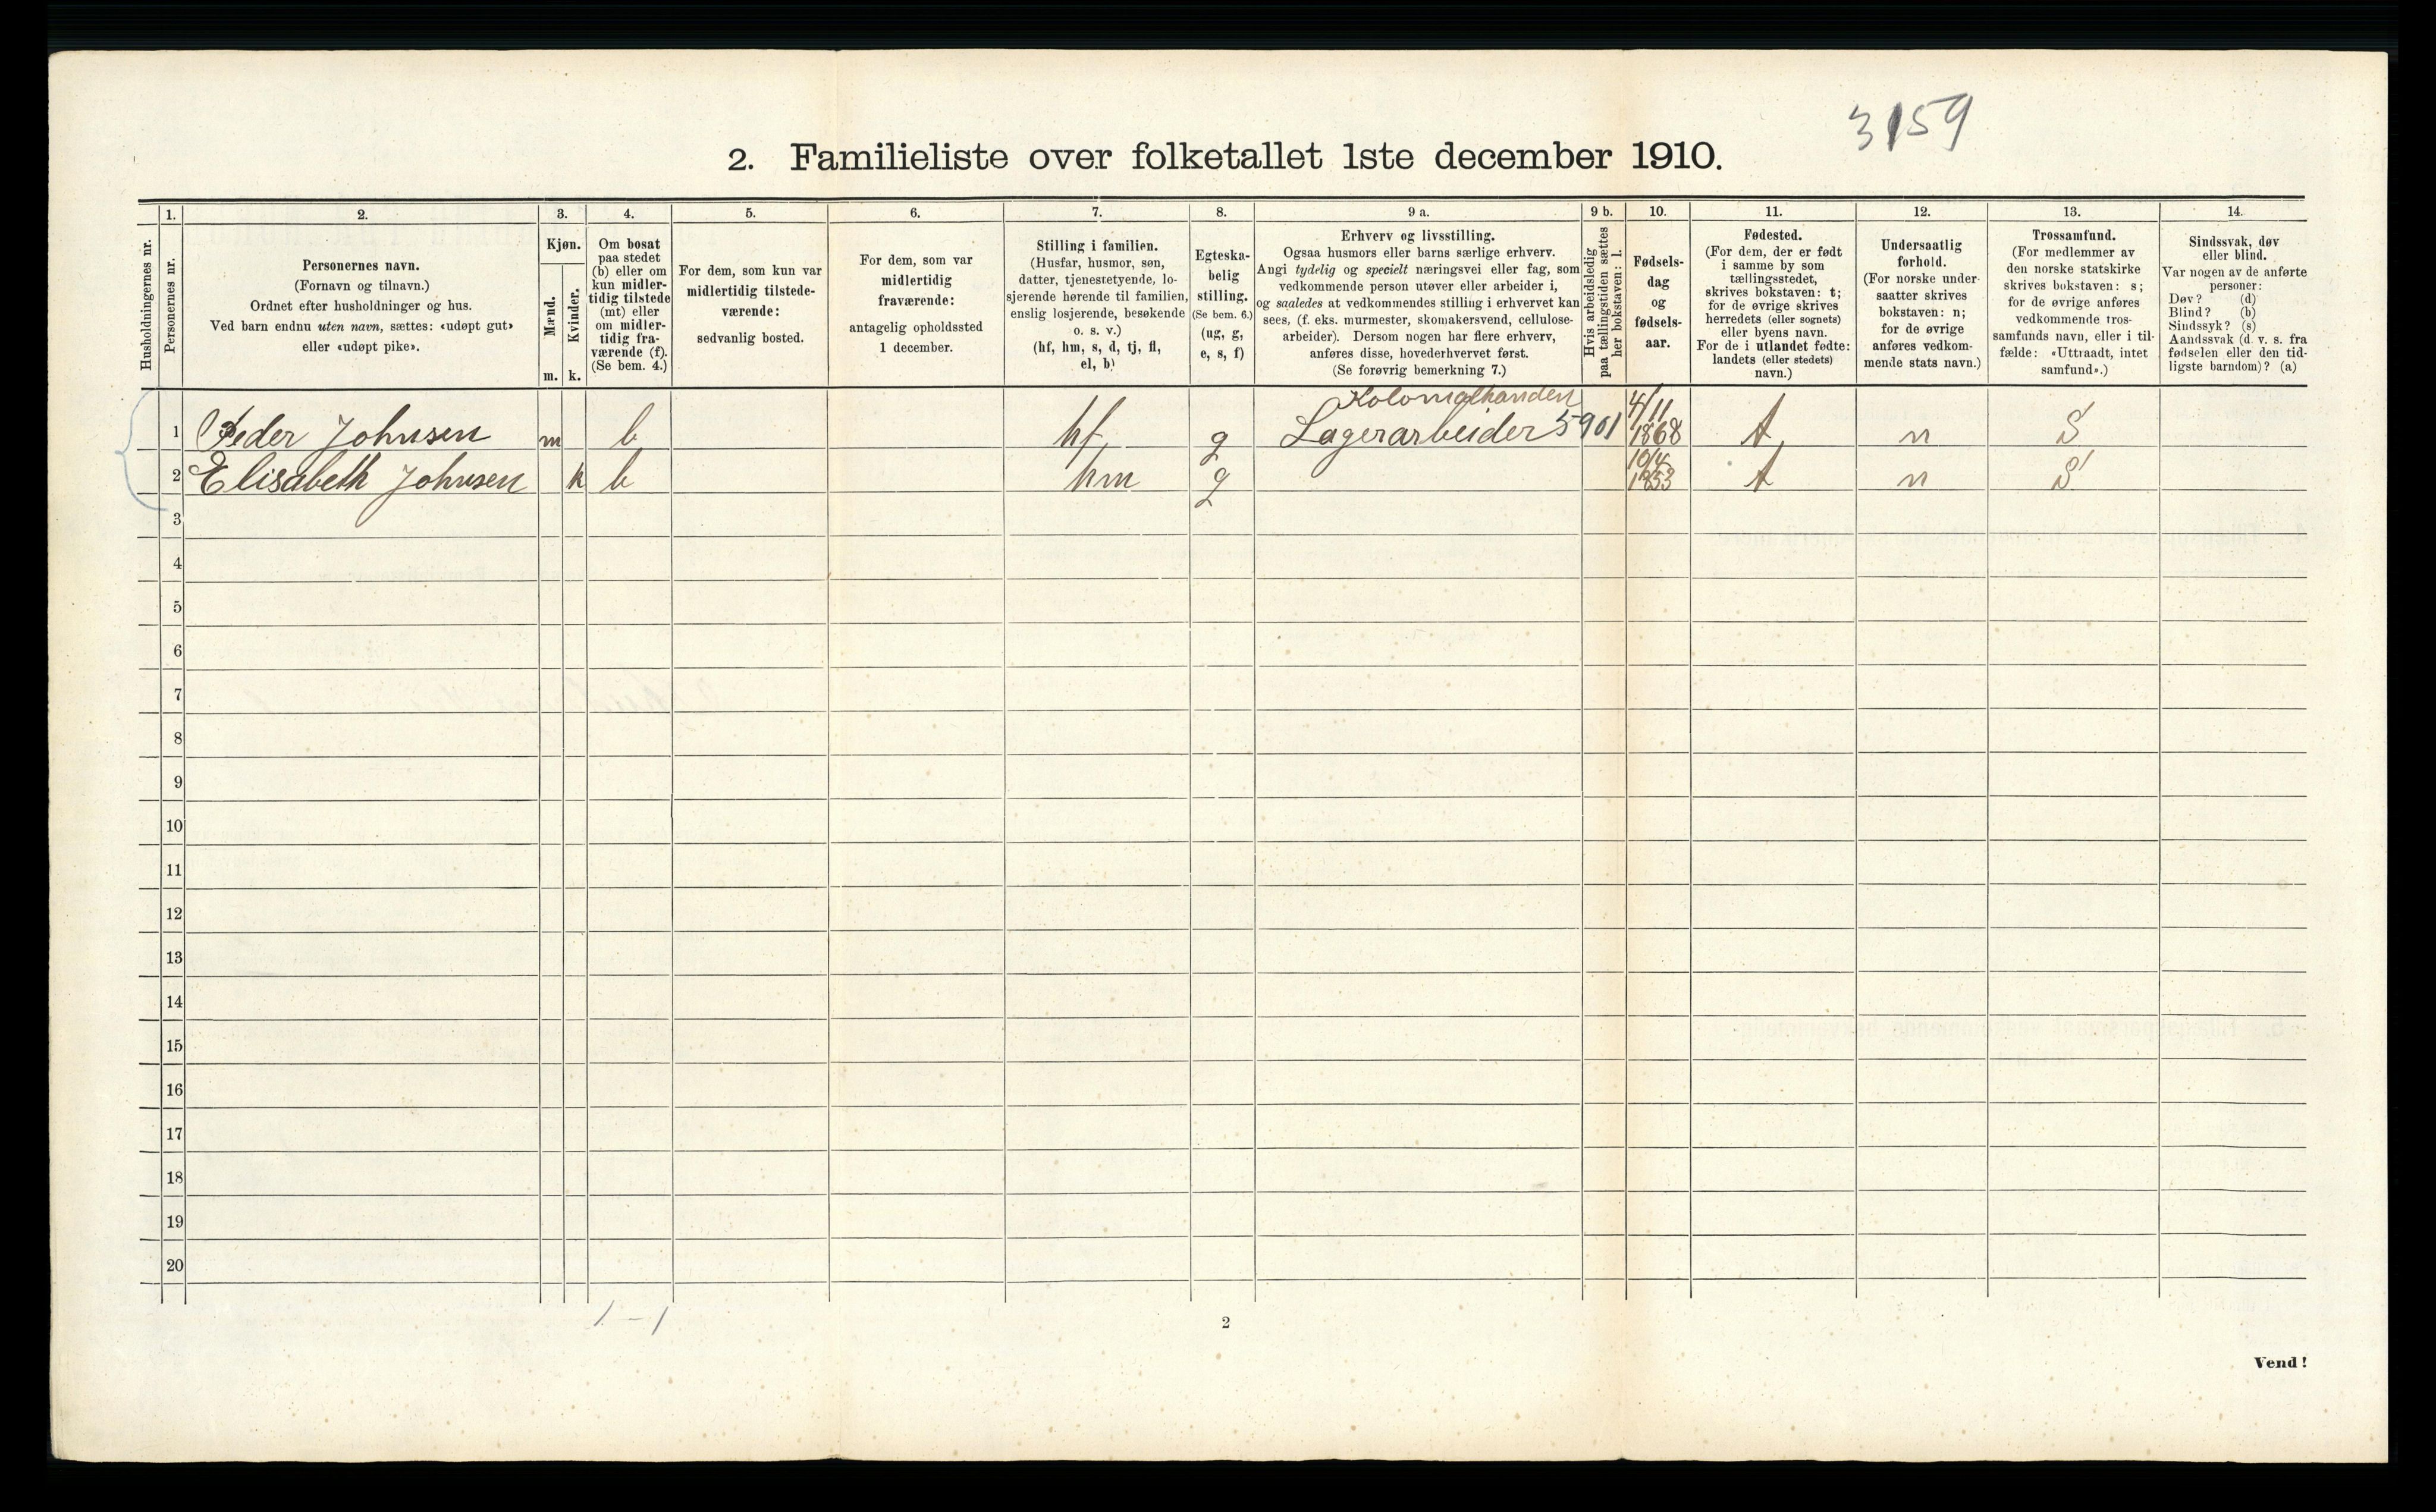 3159
2. Familieliste over folketallet 1ste december 1910.
Husholdningernes nr.
1.
Personernes nr.
2.
Personernes navn.
(Fornavn og tilnavn.)
Ordnet efter husholdninger og hus.
Ved barn endnu uten navn, sættes: «udøpt gut»
eller «udøpt pike».
3.
Kjøn.
Mænd.
Kvinder.
m. k.
4.
Om bosat
paa stedet
(b) eller om
kun midler-
tidig tilstede
(mt) eller
om midler-
tidig fra-
værende (f).
(Se bem. 4.)
5.
For dem, som kun var
midlertidig tilstede-
værende:
sedvanlig bosted.
6.
For dem, som var
midlertidig
fraværende:
antagelig opholdssted
1 december.
7.
Stilling i familien.
(Husfar, husmor, søn,
datter, tjenestetyende, lo-
sjerende hørende til familien,
enslig losjerende, besøkende
o. s. v.)
(hf, hm, s, d, tj, fl,
el, b)
8.
Egteska-
belig
stilling.
(Se bem. 6.)
(ug, g,
e, s, f)
9 a.
Erhverv og livsstilling.
Ogsaa husmors eller barns særlige erhverv.
Angi tydelig og specielt næringsvei eller fag, som
vedkommende person utøver eller arbeider i,
og saaledes at vedkommendes stilling i erhvervet kan
sees, (f. eks. murmester, skomakersvend, cellulose-
arbeider). Dersom nogen har flere erhverv,
anføres disse, hovederhvervet først.
(Se forøvrig bemerkning 7.)
9 b.
Hvis arbeidsledig
paa tællingstiden sættes
her bokstaven: l.
10.
Fødsels-
dag
og
fødsels-
aar.
11.
Fødested.
(For dem, der er født
i samme by som
tællingsstedet,
skrives bokstaven: t;
for de øvrige skrives
herredets (eller sognets)
eller byens navn.
For de i utlandet fødte:
landets (eller stedets)
navn.)
12.
Undersaatlig
forhold.
(For norske under-
saatter skrives
bokstaven: n;
for de øvrige
anføres vedkom-
mende stats navn.)
13.
Trossamfund.
(For medlemmer av
den norske statskirke
skrives bokstaven: s;
for de øvrige anføres
vedkommende tros-
samfunds navn, eller i til-
fælde: «Uttraadt, intet
samfund».)
14.
Sindssvak, døv
eller blind.
Var nogen av de anførte
personer:
Døv? (d)
Blind? (b)
Sindssyk? (s)
Aandssvak (d. v. s. fra
fødselen eller den tid-
ligste barndom)? (a)
Kolonialhandel 4/11
1 Peder Johnsen m b hf g Lagerarbeider 5901 1868 t n S
10/4
2 Elisabeth Johnsen k b hm g 1853 t n S
3
4
5
6
7
8
9
10
11
12
13
14
15
16
17
18
19
20
1 - 1
2
Vend!